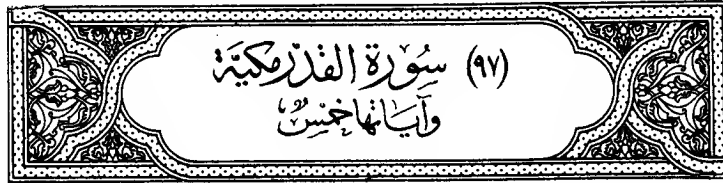 (٩٧) سُورَة القَدْر مَكيَّة
وَآيَاتها خَمسٌ